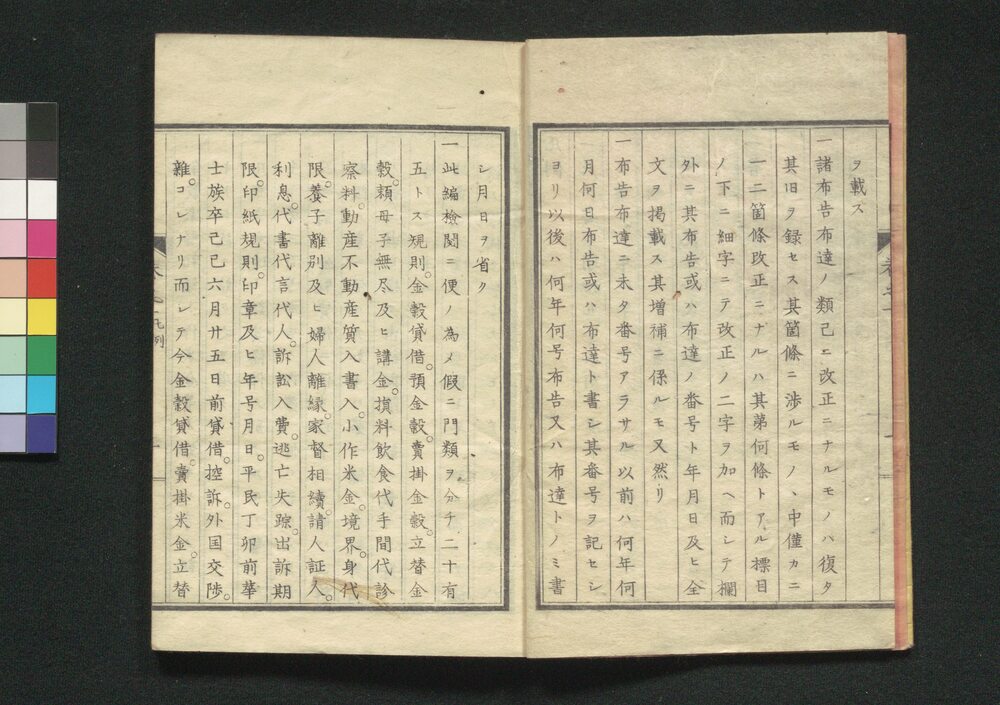 ヲ載ス
一諸布告布達ノ類已ニ改正ニナルモノハ復タ
其旧ヲ録セス其箇條ニ渉ルモノヽ中僅カニ
一二箇條改正ニナルハ其第何條トアル標目
ノ下ニ細字ニテ改正ノ二字ヲ加ヘ而シテ欄
外ニ其布告或ハ布達ノ番号ト年月日及ヒ全
文ヲ掲載ス其増補ニ係ルモ又然リ
一布告布達ニ未タ番号アラサル以前ハ何年何
月何日布告或ハ布達ト書シ其番号ヲ記セシ
ヨリ以後ハ何年何号布告又ハ布達トノミ書
シ月日ヲ省ク
一此編檢閲ニ便ノ為メ假ニ門類ヲ分チ二十有
五トス規則。金穀貸借。預金穀。賣掛金穀。立替金
穀。頼母子無尽及ヒ講金。損料飲食代手間代診
察料。動産不動産質入書入。小作米金。境界。身代
限。養子離別及ヒ婦人離縁。家督相續。請人証人。
利息。代書代言代人。訴訟入費。逃亡失踪。出訴期
限。印紙規則。印章及ヒ年号月日。平民丁卯前華
士族卒己巳六月廿五日前貸借。控訴。外国交渉。
雜。コレナリ而シテ今金穀貸借。賣掛米金。立替
凡例